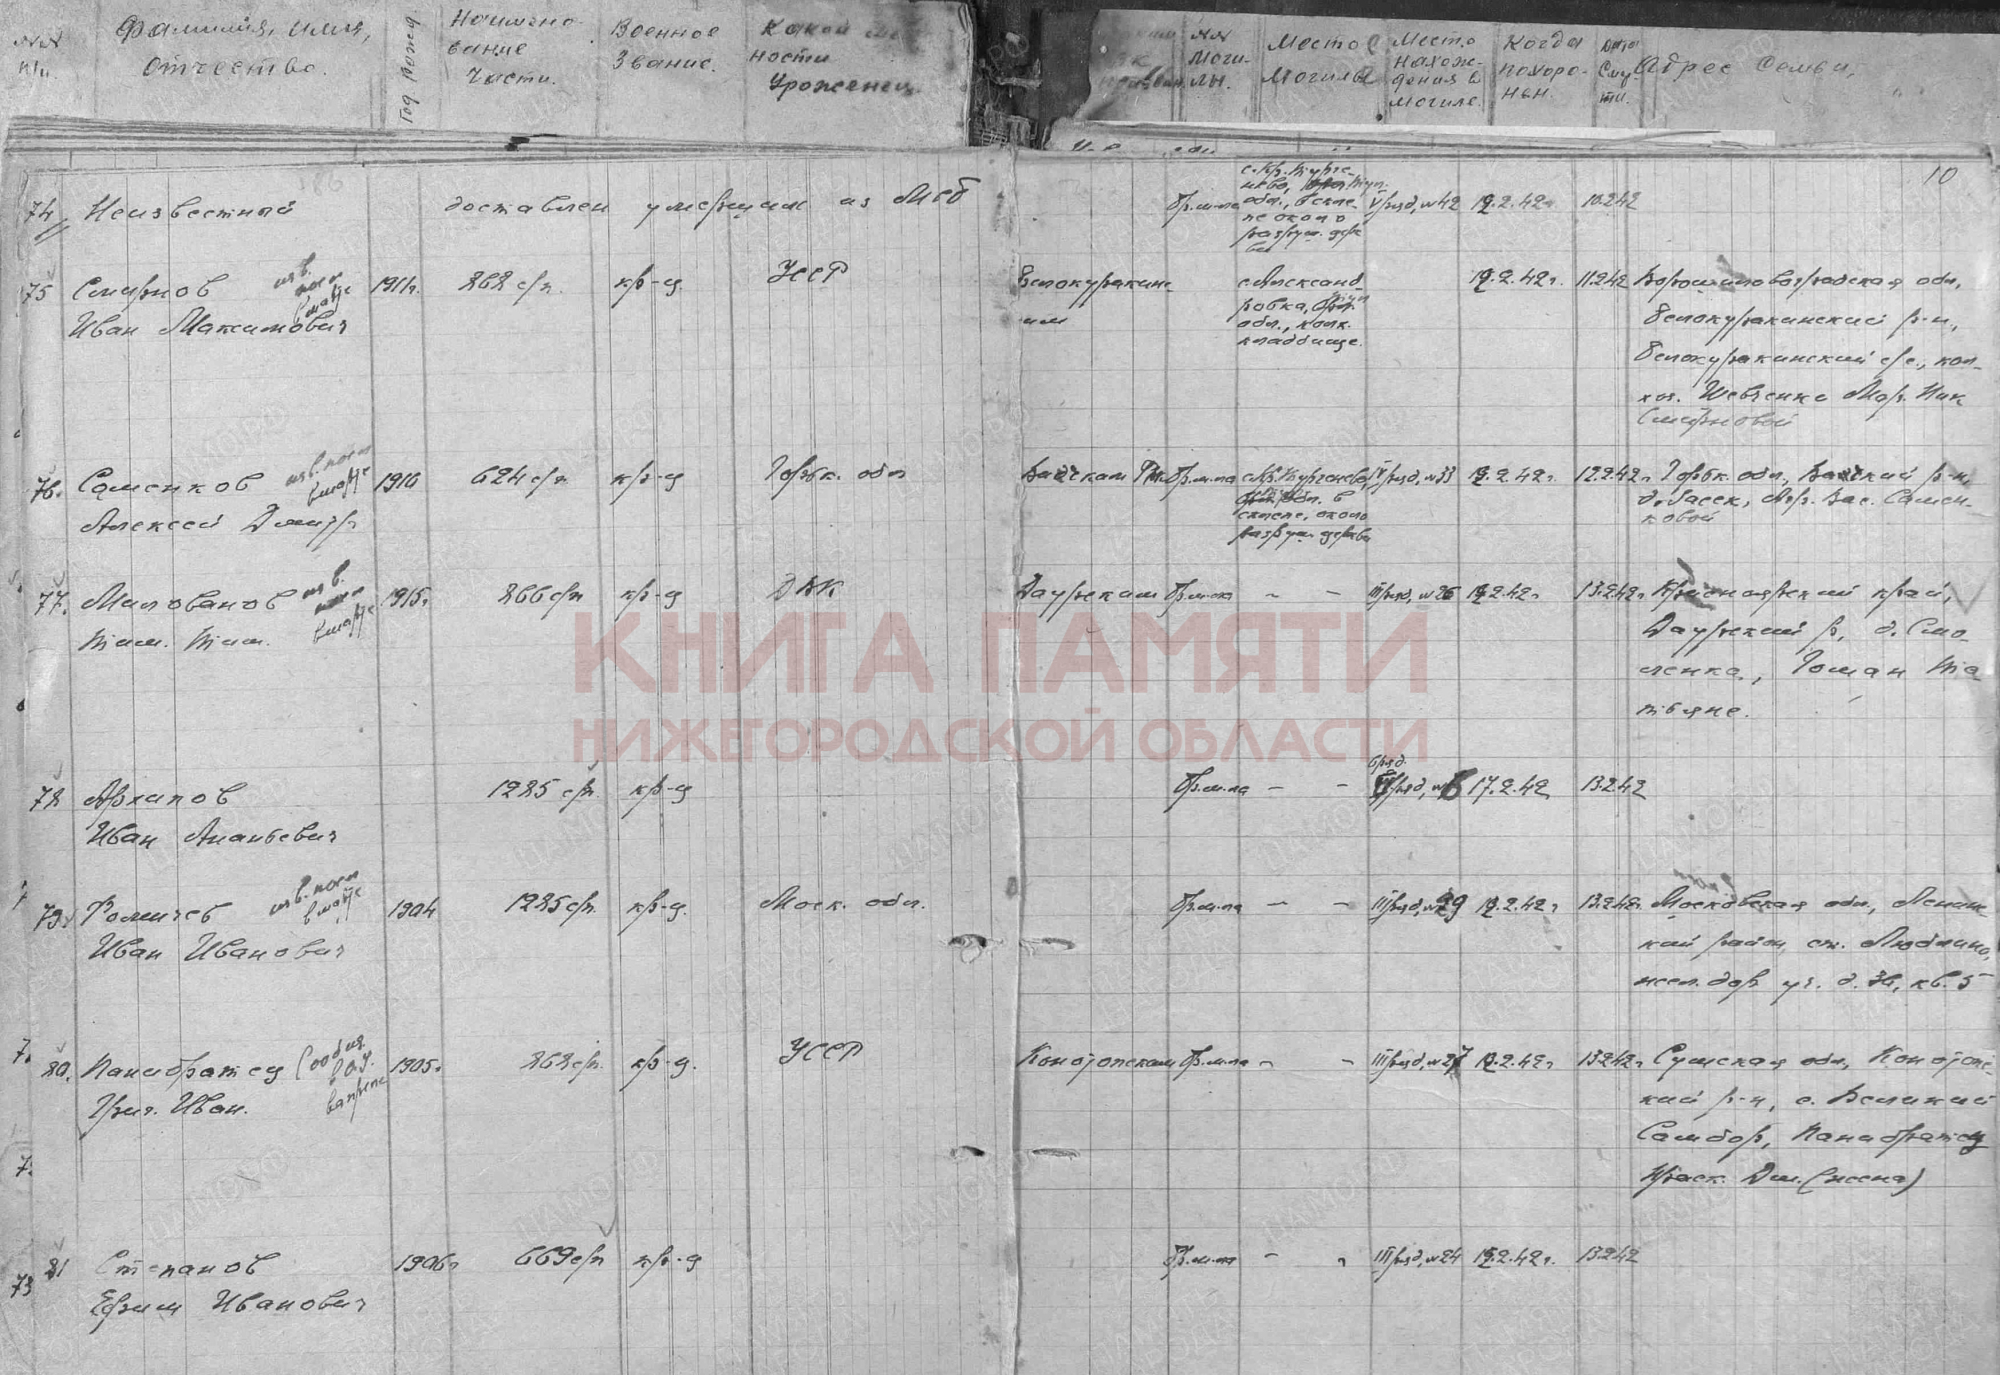 №№ п/п.
Фамилия, имя, Отчество.
Год рожд
Наимено- вание Части.
Военное Звание.
Какой ности Урожениц
№№ моги- лы.
Место Могилы
Место нахож- дения в могиле.
Когда похоро- нен.
Дата Сме- ти.
Адрес семьи,
10
74 Неизвестный доставлен умершим из МСБ
бр. м-ла
обл., в скле- пе около разруш. дере
V ряд, №42 19.2.42 10.2.42
75 Смирнов Иван Максимович
изв. посл в марте
1911г. 868 с/п. кр-ц УССР
Белокуракин- ким
с. Александ- ровка,
обл., колх. кладбище.
19.2.42г. 11.2.42
Ворошиловоградская обл, Белокуракинский р-н, Белокуракинский с/с., кол- хоз. Шевченко Мар. Ник Смирновой
76. Саменков Алексей Дмитр
изв. посл в марте
1910 624 с/п кр-ц Горьк. обл
Вачским РВК бр. м-ла
обл. в склепе, около разруш. дерева
ряд, №33 19.2.42г. 12.2.42г
Горьк. обл, Вачский р-н, Вас. Самен- ковой
77. Милованов Тим. Тим.
изв. посл в марте
1915г 866 с/п кр-ц ДВК
Даурским бр. м-ла - - III ряд, №26 19.2.42г 13.2.42г
Красноярский край, Даурский р, д. Смо- ленка, Томан Та- тьяне.
78 Архипов Иван Ананьевич
1285 с/п кр-ц
бр. м-ла - -
6 ряд.
17.2.42 13.2.42
79 Фомичев Иван Иванович
изв. посл в марте
1904 1285 с/п. кр-ц. Моск. обл.
бр. м-ла - - III ряд, №29 19.2.42г 13.2.42г.
Московская обл, Ленин- кий район, ст. Люблино, жел. дор уч. д. 36, кв. 5
80. Панибратец Григ. Иван.
Сообщ. в апреле
1905г 868 с/п. кр-ц. УССР
Конотопским бр. м-ла - - III ряд, №27 19.2.42г 13.2.42г
Сумская обл, Конотоп- кий р-н, с. Великий Самбор, Панибратец Праск. Дм. (жена)
81 Степанов Ефим Иванович
1906г 669 с/п кр-ц
бр. м-ла - " III ряд, №24 19.2.42г. 13.2.42
КНИГА ПАМЯТИ
НИЖЕГОРОДСКОЙ ОБЛАСТИ